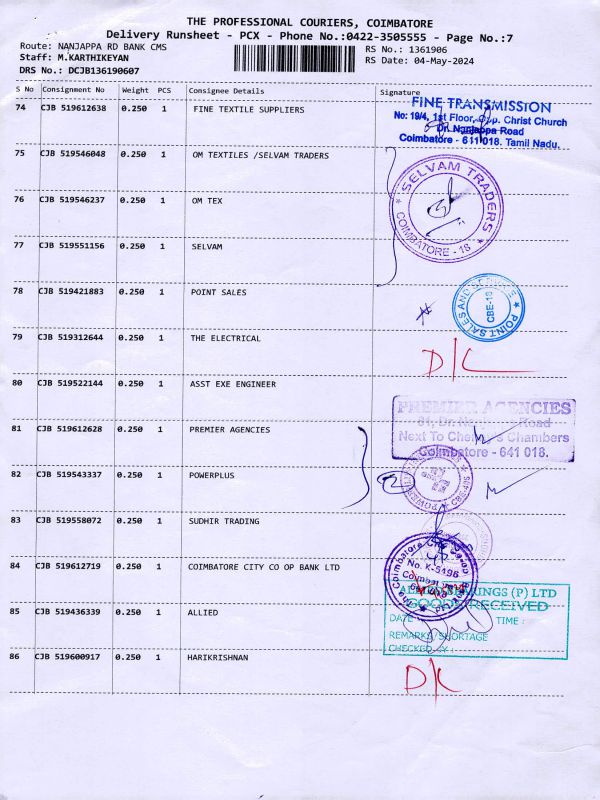 THE PROFESSIONAL COURIERS, COIMBATORE
Delivery Runsheet - PCX - Phone No.:0422-3505555 - Page No.:7
Route: NANJAPPA RD BANK CMS
RS No.: 1361906
Staff: M.KARTHIKEYAN
RS Date: 04-May-2024
DRS No.: DCJB136190607
S No Consignment No Weight PCS Consignee Details Signature
74 CJB 519612638 0.250 1 FINE TEXTILE SUPPLIERS
FINE TRANSMISSION
No: 19/4, 1st Floor, Opp. Christ Church
Dr. Nanjappa Road
Coimbatore - 641 018. Tamil Nadu.
75 CJB 519546048 0.250 1 OM TEXTILES /SELVAM TRADERS
76 CJB 519546237 0.250 1 OM TEX
SELVAM TRADERS
COIMBATORE - 18
77 CJB 519551156 0.250 1 SELVAM
78 CJB 519421883 0.250 1 POINT SALES
POINT SALES AND SERVICES
CBE-18
79 CJB 519312644 0.250 1 THE ELECTRICAL
D/L
80 CJB 519522144 0.250 1 ASST EXE ENGINEER
81 CJB 519612628 0.250 1 PREMIER AGENCIES
PREMIER AGENCIES
Road
Next To Chambers
Coimbatore - 641 018.
82 CJB 519543337 0.250 1 POWERPLUS
2
83 CJB 519558072 0.250 1 SUDHIR TRADING
84 CJB 519612719 0.250 1 COIMBATORE CITY CO OP BANK LTD
Coimbatore City
No. K-5196
85 CJB 519436339 0.250 1 ALLIED
(P) LTD
GOODS RECEIVED
DATE : TIME :
REMARKS/SHORTAGE
CHECKED BY :
86 CJB 519600917 0.250 1 HARIKRISHNAN
D/L